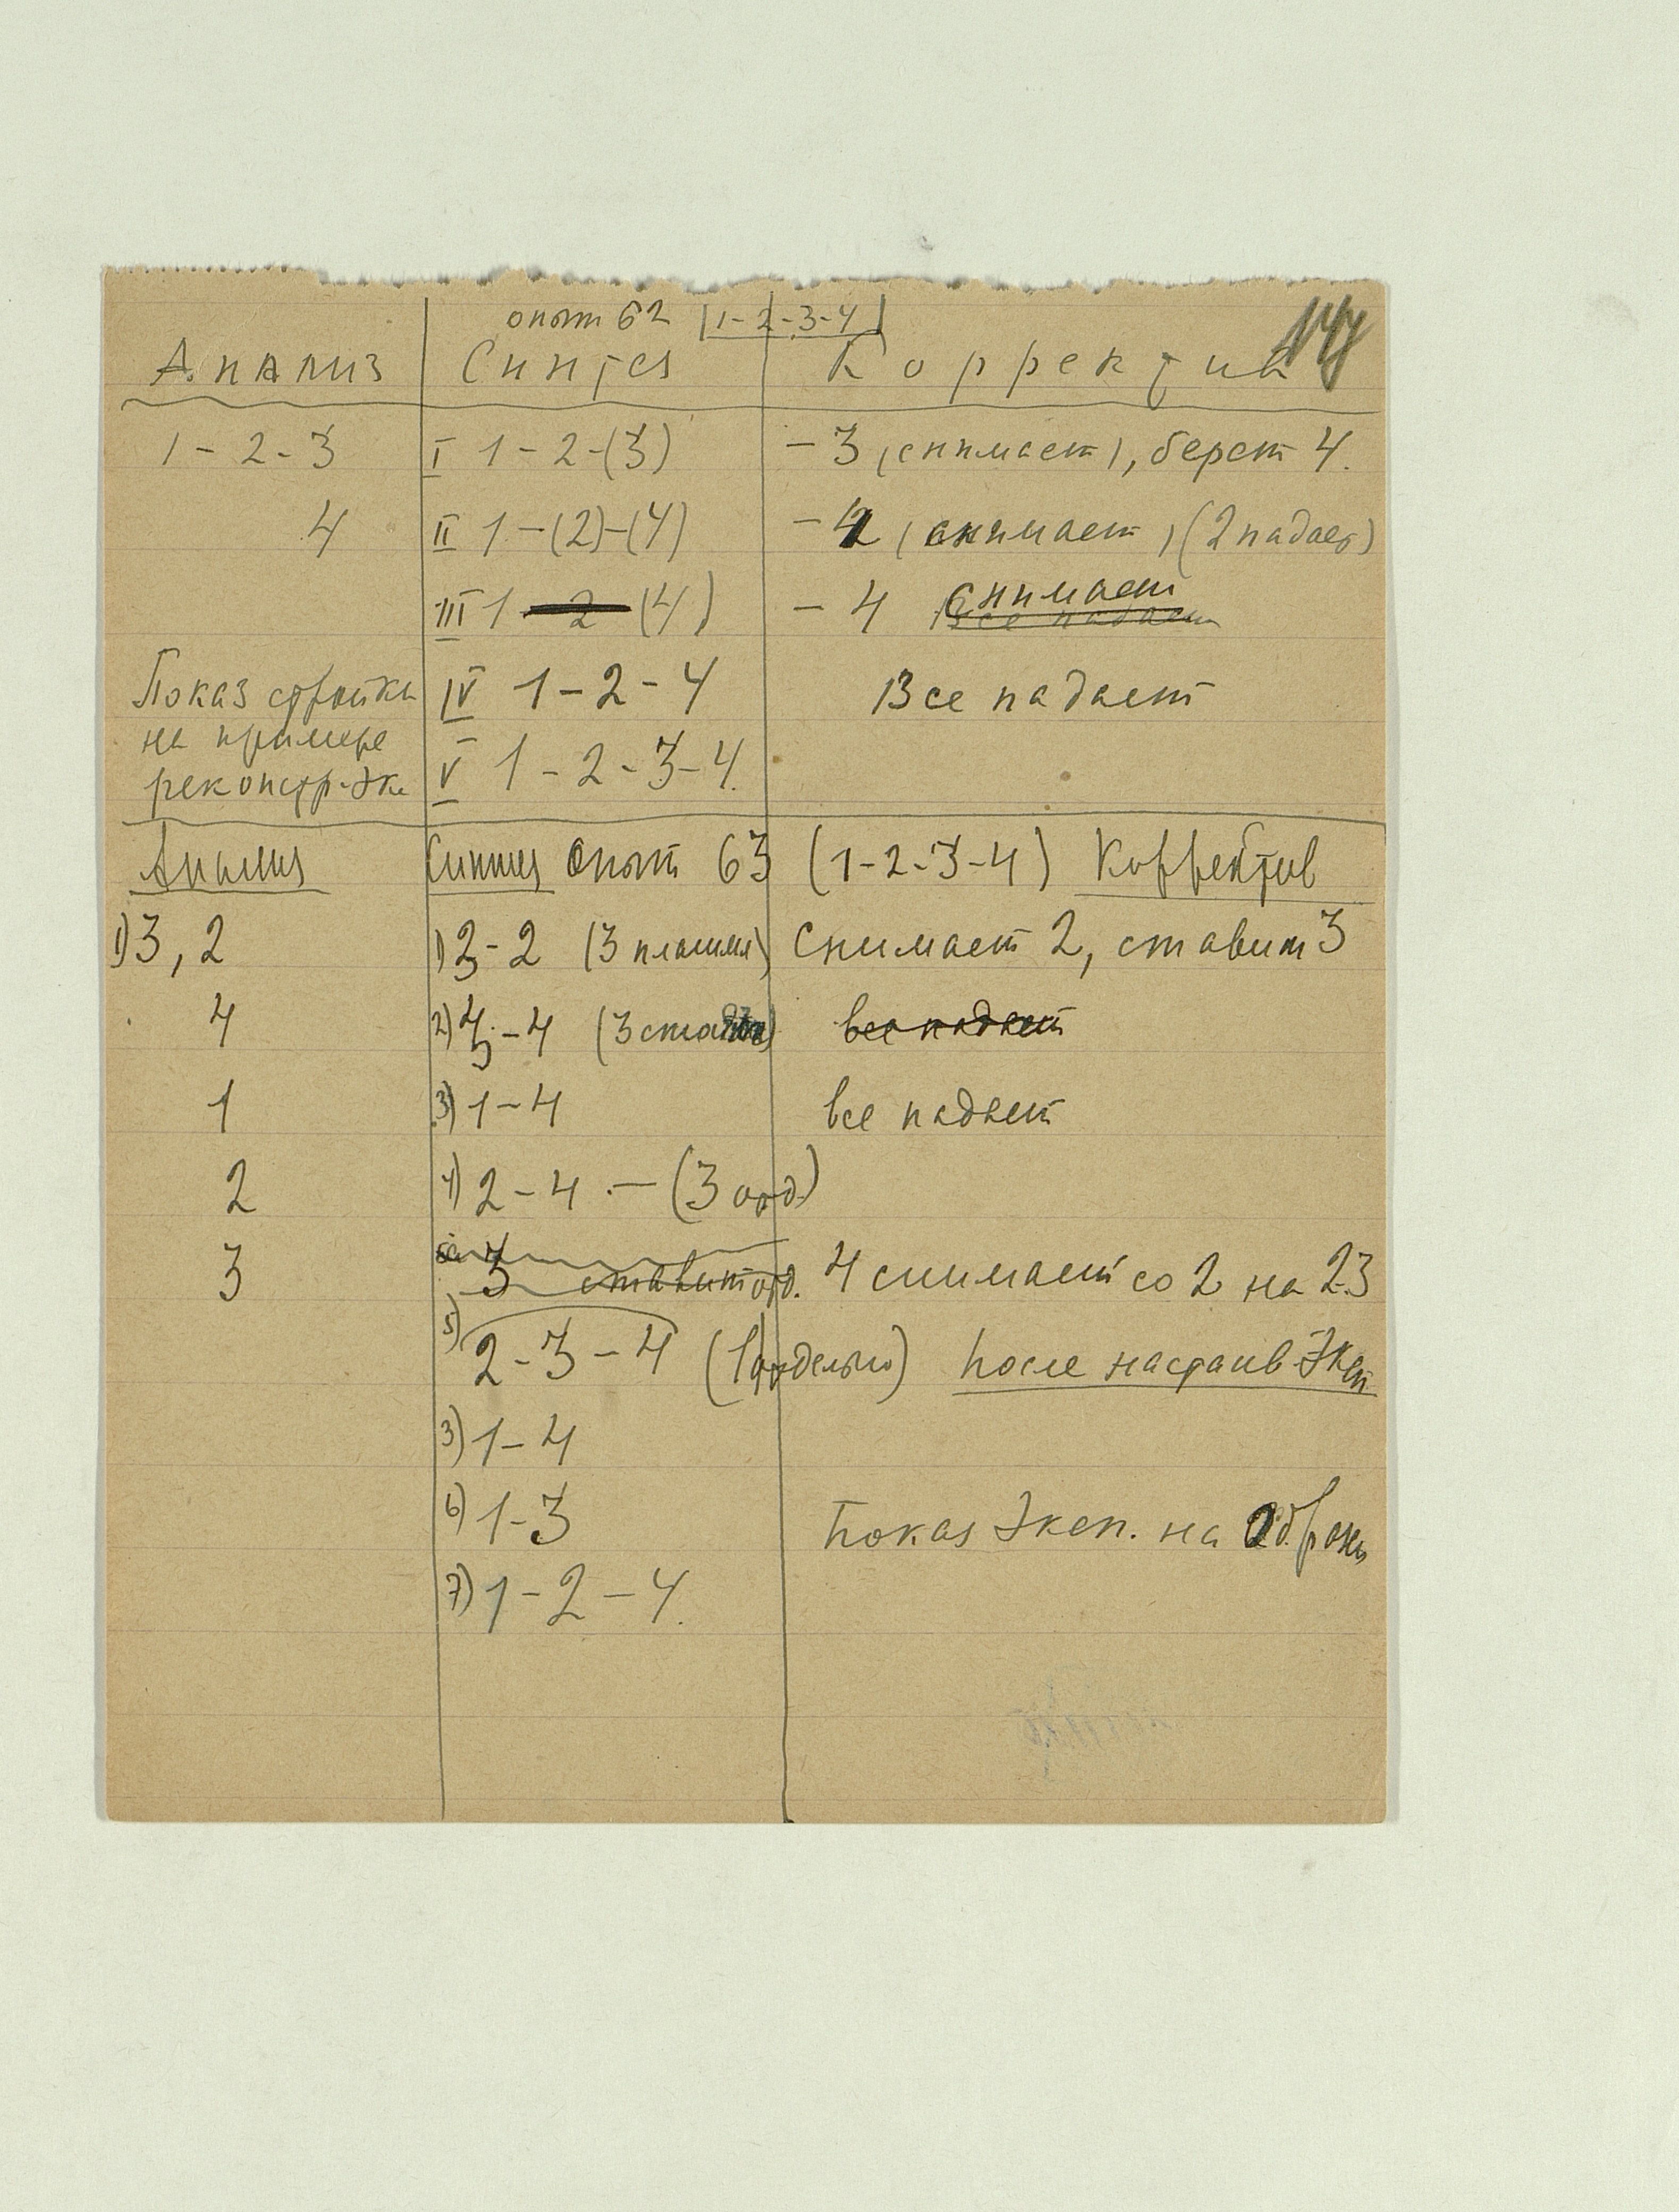 опыт 62 |1-2-3-4|
Анализ Синтез Корректив
1-2-3 I 1-2-(3) -3 (снимает), берет 4.
4 II 1-(2)-(4) - 2 (снимает) (2 падает)
III 1 - 2 - (4) - 4 снимает
все падает
Показ стройки IV 1-2-4 Все падает
на примере
реконстр. эксп. V 1-2-3-4.
Анализ Синтез Опыт 63 (1-2-3-4) Корректив
1) 3, 2 1) 3-2 (3 плашмя) Снимает 2, ставит 3
4 2) 3-4 (3 все падает
1 3) 1-4 все падает
2 4) 2-4 - (3 отд.)
3 3 ставит отд. 4 снимает со 2 на 2.3
5) 2-3-4 (1 отдельно) После настаив. Эксп.
3) 1-4
6) 1-3 Показ Эксп. на
7) 1-2-4.